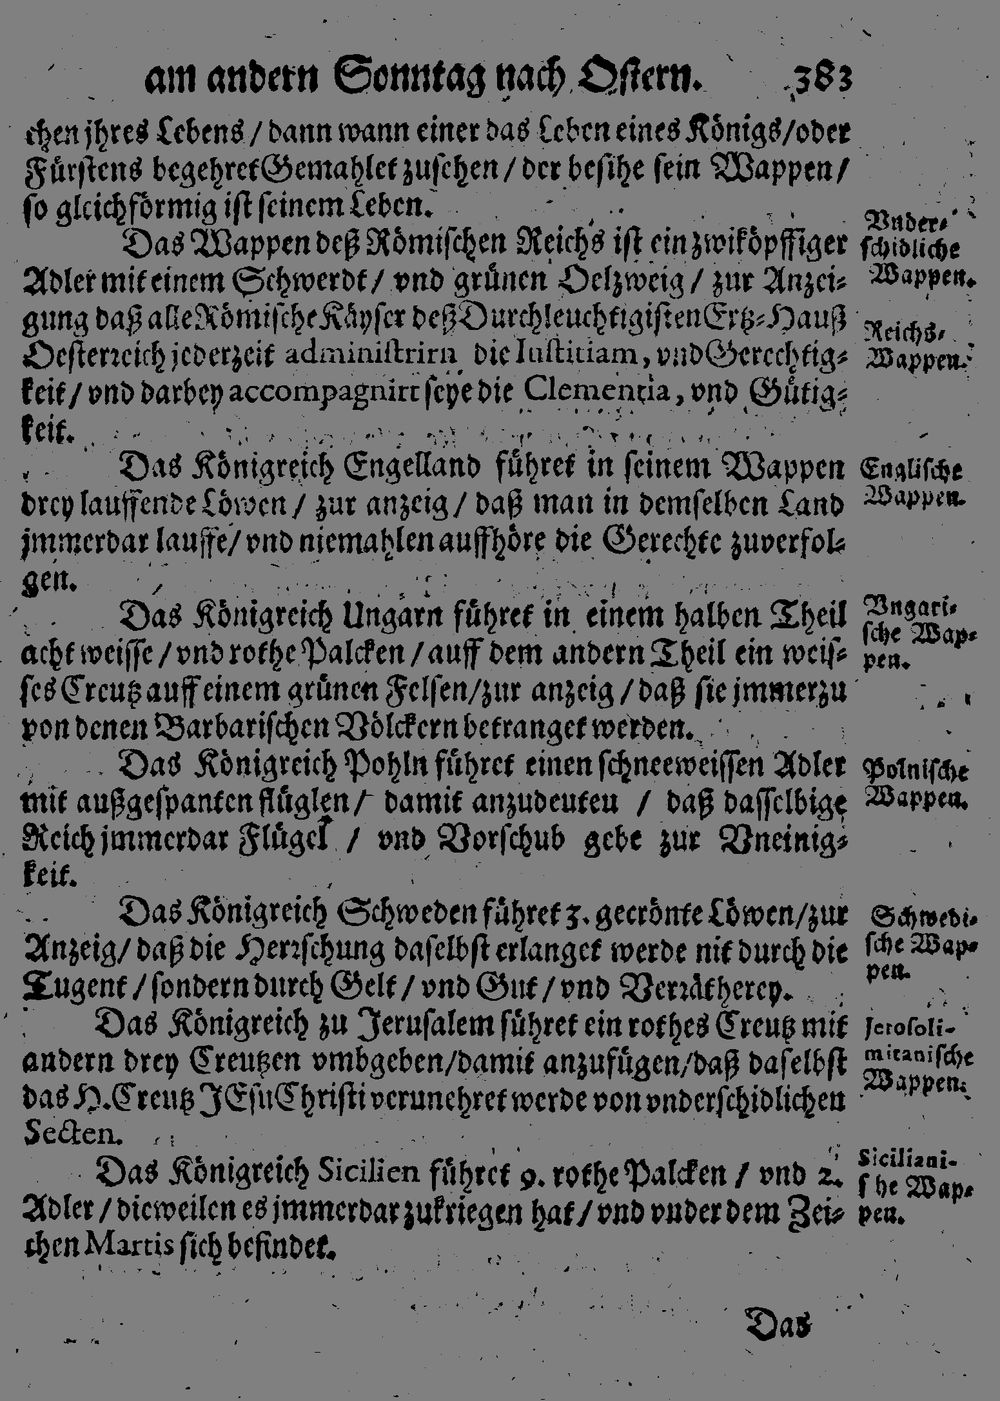 am andern Sonntag nach Ostern. 383
chen jhres Lebens / dann wann einer das Leben eines Königs/oder
Fürstens begehret Gemahlet zusehen / der besihe sein Wappen /
so gleichförmig ist seinem Leben.
Das Wappen deß Römischen Reichs ist ein zwiköpffiger
Adler mit einem Schwerdt / vnd grünen Oelzweig / zur Anzei-
gung daß alle Römische Käyser deß Durchleuchtigisten Ertz-Hauß
Oesterreich jederzeit administrirn die Iustitiam, vnd Gerechtig-
keit / vnd darbey accompagnirt seye die Clementia, vnd Gütig-
keit.
Das Königreich Engelland führet in seinem Wappen
drey lauffende Löwen / zur anzeig / daß man in demselben Land
jmmerdar lauffe/ vnd niemahlen auffhöre die Gerechte zuverfol-
gen.
Das Königreich Ungarn führet in einem halben Theil
acht weisse / vnd rothe Palcken / auff dem andern Theil ein weis-
ses Creutz auff einem grünen Felsen/zur anzeig / daß sie jmmerzu
von denen Barbarischen Völckern betranget werden.
Das Königreich Pohln führet einen schneeweissen Adler
mit außgespanten flüglen / damit anzudeuten / daß dasselbige
Reich jmmerdar Flügel / vnd Vorschub gebe zur Vneinig-
keit.
Das Königreich Schweden führet 3. gecrönte Löwen/zur
Anzeig/ daß die Herrschung daselbst erlanget werde nit durch die
Tugent / sondern durch Gelt / vnd Gut / vnd Verrätherey.
Das Königreich zu Jerusalem führet ein rothes Creutz mit
andern drey Creutzen vmbgeben/damit anzufügen/daß daselbst
das H. Creutz JEsu Christi verunehret werde von vnderschidlichen
Secten.
Das Königreich Sicilien führet 9. rothe Palcken / vnd 2.
Adler / dieweilen es jmmerdar zukriegen hat / vnd vnder dem Zei-
chen Martis sich befindet.
Das
Vnder-
schidliche
Wappen.
Reichs-
Wappen.
Englische
Wappen.
Vngari-
sche Wap-
pen.
Polnische
Wappen.
Schwedi-
sche Wap-
pen.
Jerosoli-
mitanische
Wappen.
Siciliani-
sche Wap-
pen.